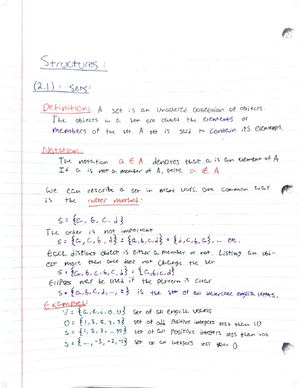 Structures:
(2.1): Sets:
Definition: A set is an unordered collection of objects.
The objects in a set are called the elements or
members of the set. A set is said to contain its elements.
Notation:
The notation a ∈ A denotes that a is an element of A.
If a is not a member of A, write a ∉ A.
We can describe a set in many ways. One common way
is the roster method:
S = {a, b, c, d}
The order is not important
S = {a, c, b, d} = {a, b, c, d} = {d, c, b, a} ... etc.
Each distinct object is either a member or not. Listing an obj-
ect more than once does not change the set
S = {a, b, c, b, c, d} = {a, b, c, d}
Ellipses may be used if the pattern is clear
S = {a, b, c, d, ..., z} is the set of all lowercase english letters.
Examples:
V = {a, e, i, o, u} set of all english vowels
O = {1, 3, 5, 7, 9} set of odd positive integers less than 10
set of all positive integers less than 100
S = {..., -3, -2, -1} set of all integers less than 0